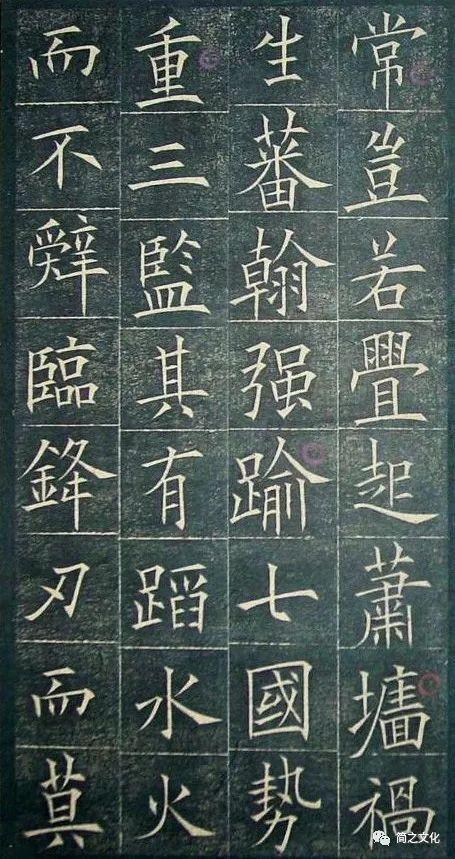 常豈若疊起蕭墻禍
生蕃翰强踰七國勢
重三監其有蹈水火
而不辭臨鋒刃而莫
简之文化